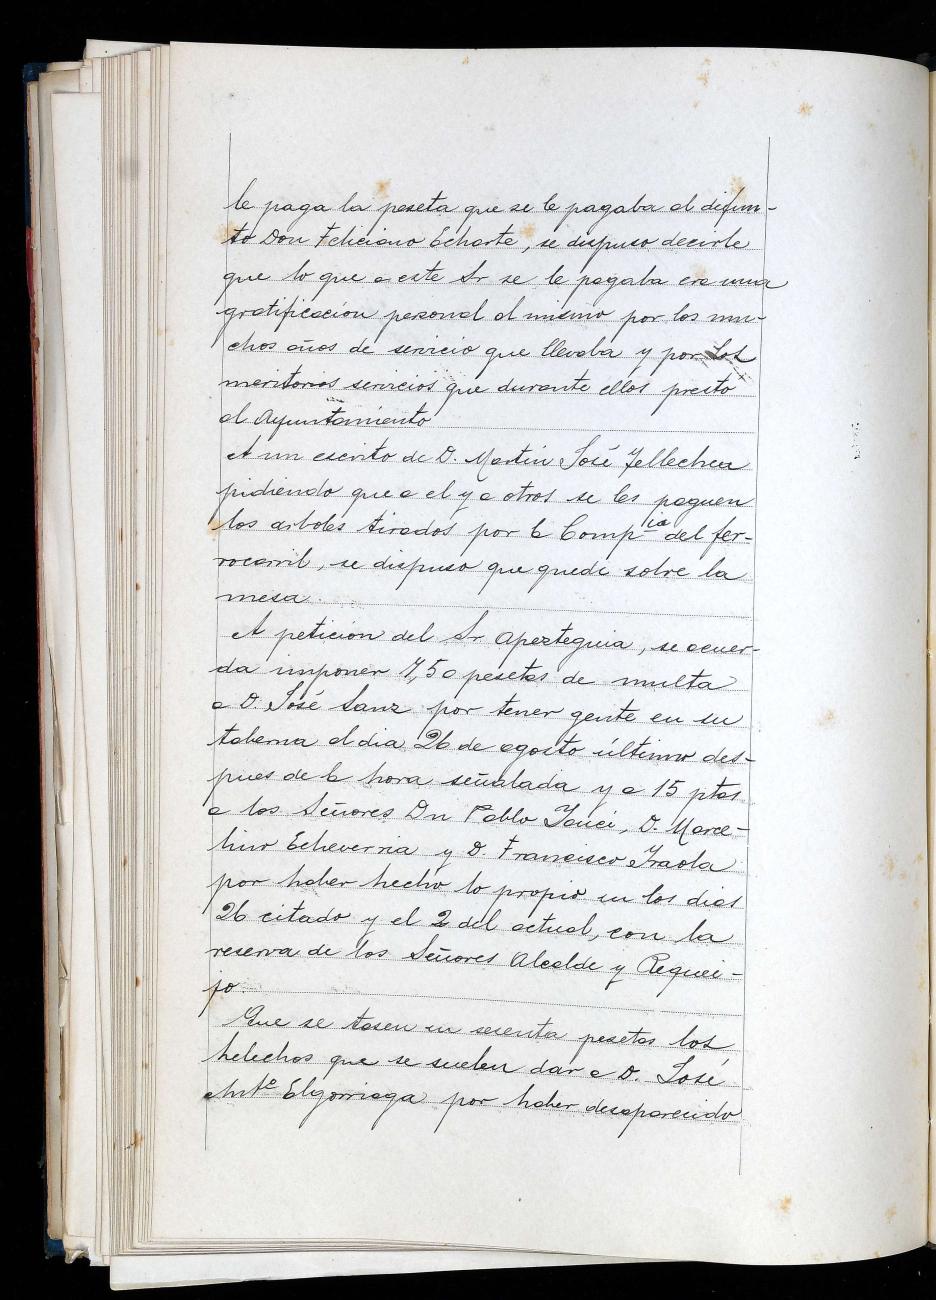 le paga la peseta que se le pagaba al difun-
to Don Feliciano Echarte, se dispuso decirle
que lo que a este Sr se le pagaba era una
gratificación personal al mismo por los mu-
chos años de servicio que llevaba y por los
meritorios servicios que durante ellos prestó
al Ayuntamiento
A un escrito de D. Martin José Tellechea
pidiendo que a el y a otros se les paguen
los arboles tirados por la Compia del fer-
rocarril, se dispuso que quede sobre la
mesa.
A petición del Sr Apezteguia, se acuer-
da imponer 7,50 pesetas de multa
a D. José Sanz por tener gente en su
taberna el dia 26 de agosto último des-
pues de la hora señalada y a 15 ptas
a los Señores Dn Pablo Janci, D. Marce-
lino Echeverria y D. Francisco Iraola
por haber hecho lo propio en los dias
26 citado y el 2 del actual, con la
reserva de los Señores Alcalde y Requei-
jo.
Que se tasen en sesenta pesetas los
helechos que se suelen dar a D. José
Antº Elgorriaga por haber desaparecido